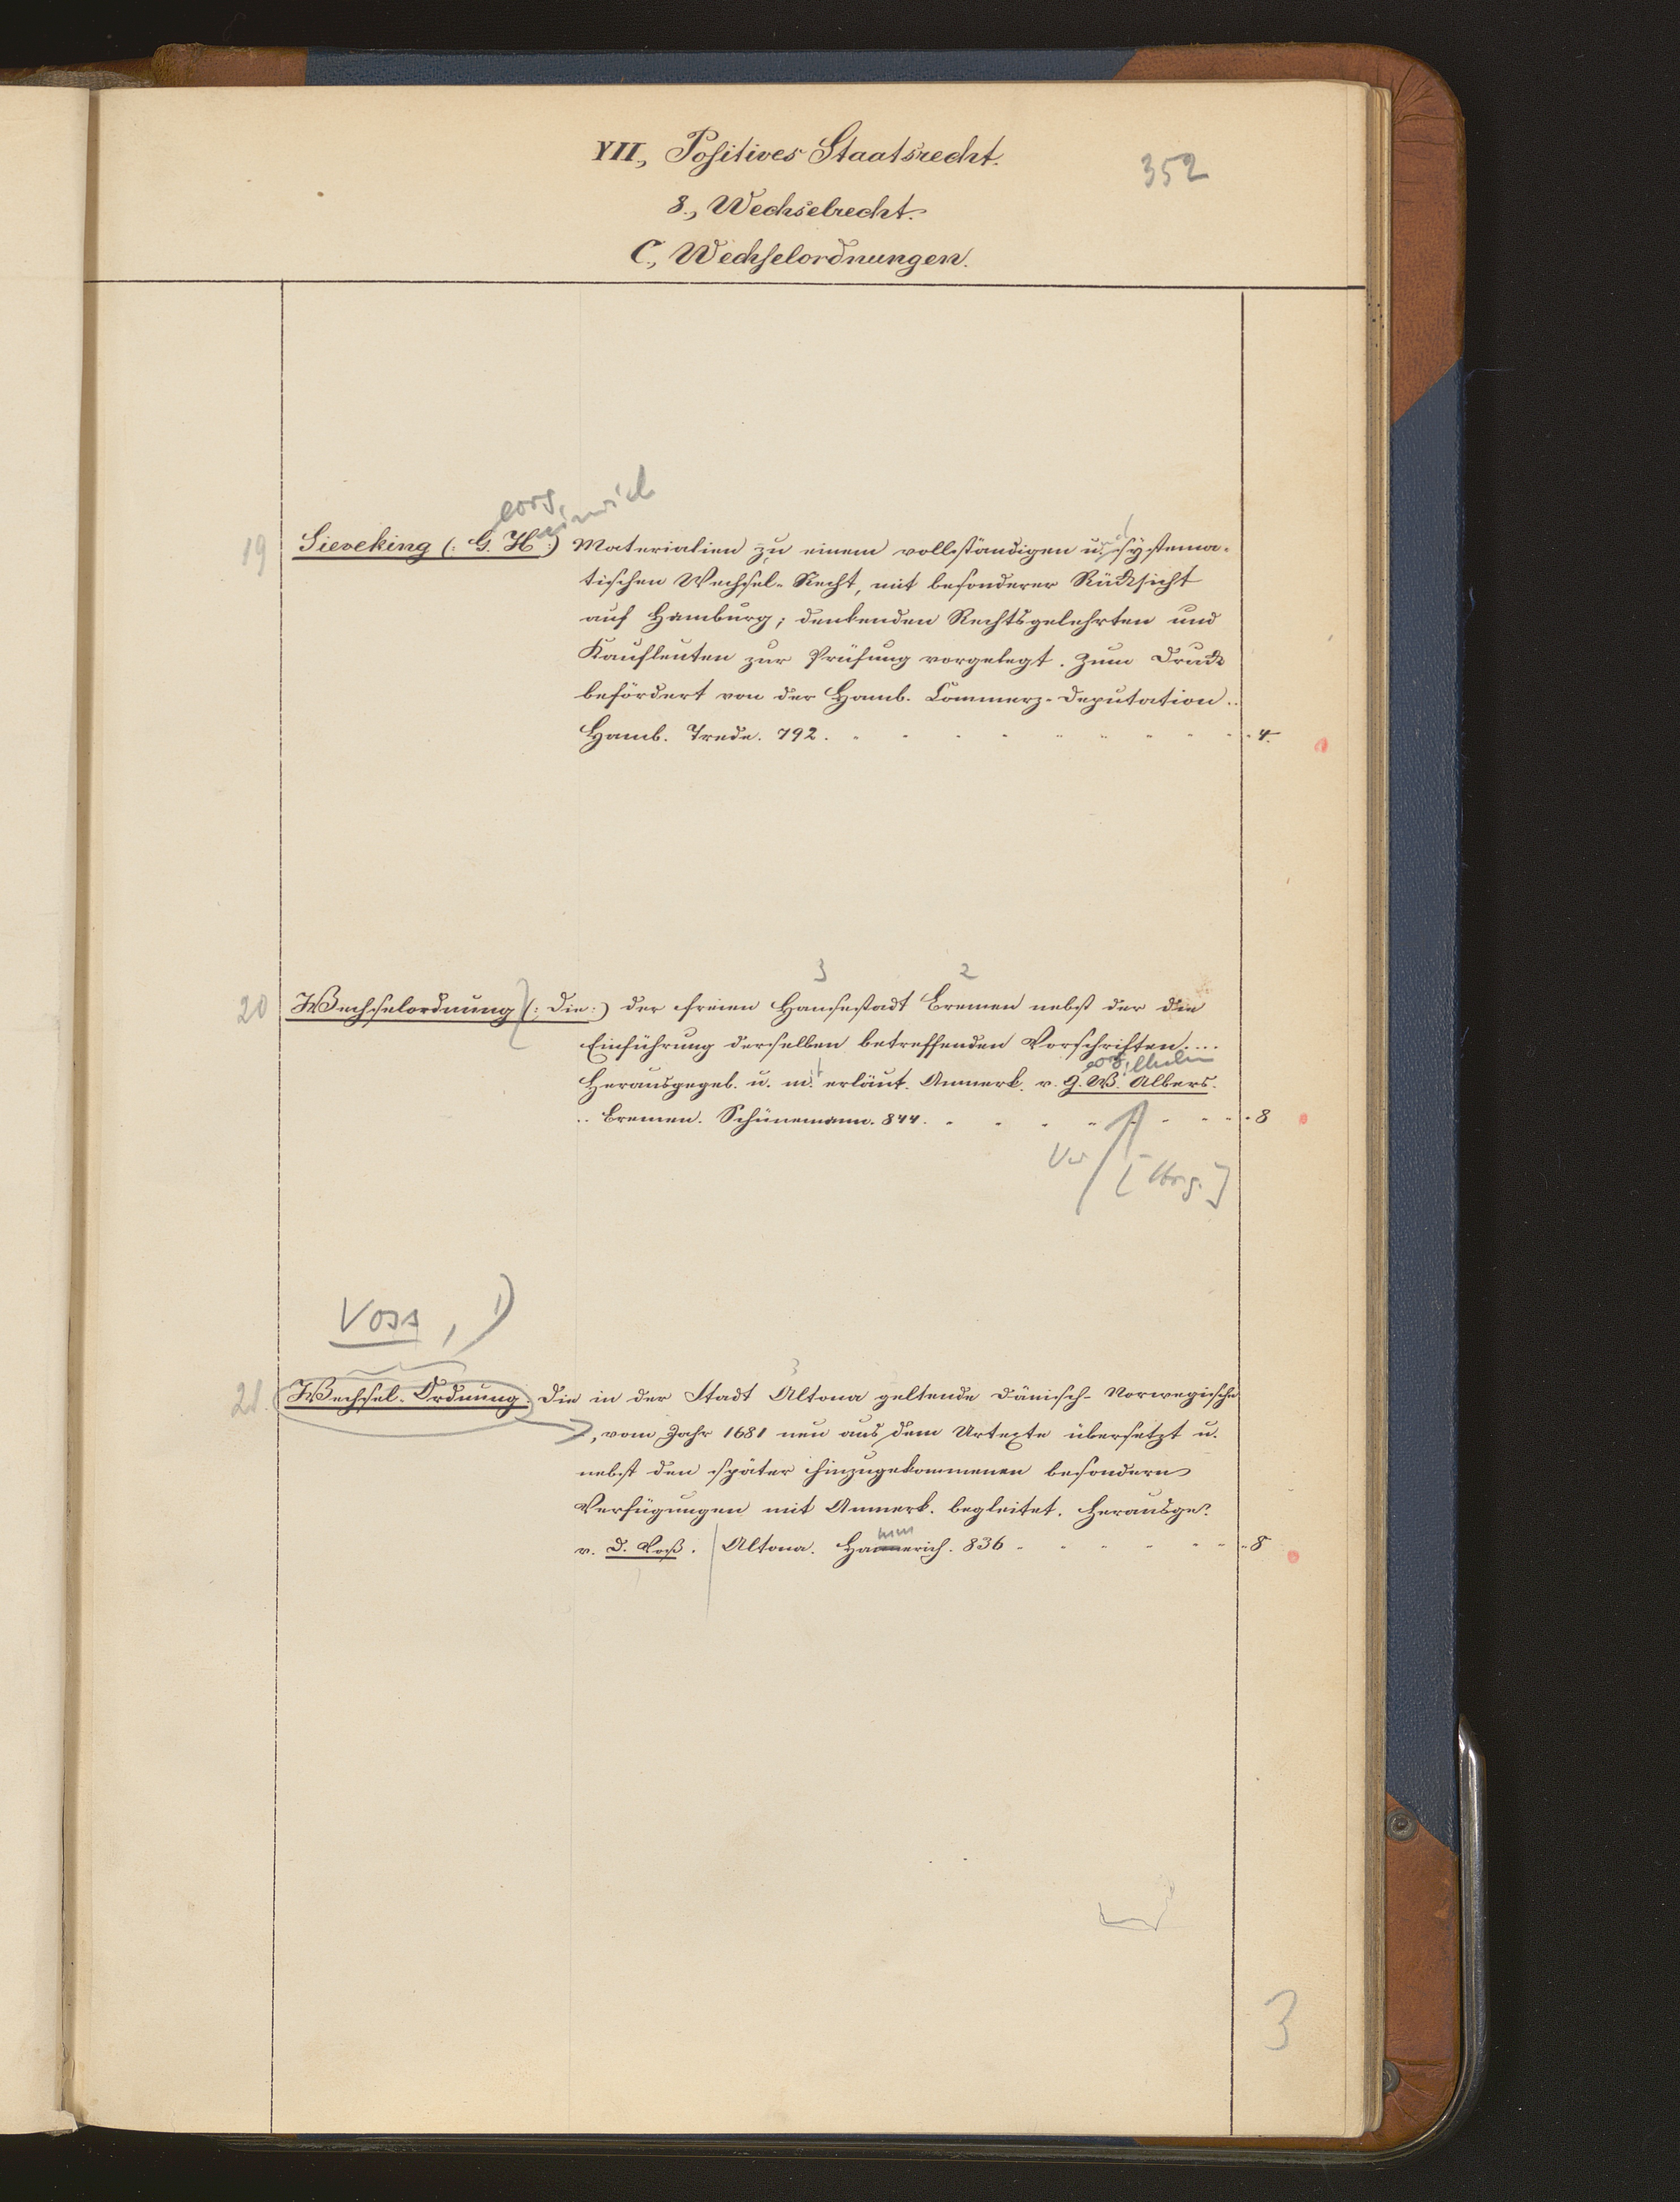 VII., Positives Staatsrecht.
352
8., Wechselrecht.
C., Wechselordnungen.
eorg
einrich
19 Sieveking (: G. H :) Materialien zu einem vollständigen u. systema-
tischen Wechsel-Recht, mit besonderer Rücksicht
auf Hamburg; denkenden Rechtsgelehrten und
Kaufleuten zur Prüfung vorgelegt. Zum Druck
befördert von der Hamb. Commerz-Deputation..
Hamb. Trede. 792. 4.
3 2
20 Wechselordnung (: Die :) der freien Hansestadt Bremen nebst der die
Einführung derselben betreffenden Vorschriften....
eorg ilhelm
Herausgegeb. u. m. erläut. Anmerk. v. G. W. Albers.
.. Bremen. Schünemann. 844. 8
Vw [Hrsg.]
Voss, 1)
3
21. Wechsel-Ordnung. Die in der Stadt Altona geltende Dänisch-Norwegische
, vom Jahr 1681 neu aus dem Urtexte übersetzt u.
nebst den später hinzugekommenen besondern
Verfügungen mit Anmerk. begleitet. Herausge.
mm
v. D. Voß. Altona. Hammerich. 836 8
3